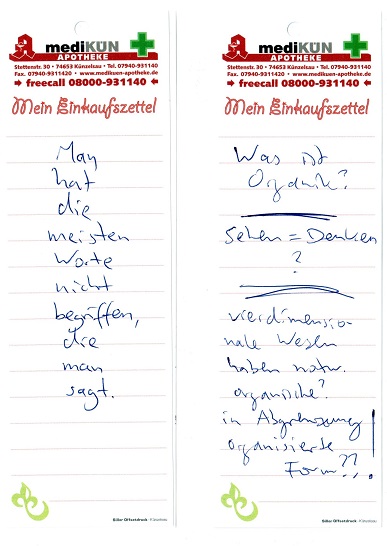 mediKÜN
APOTHEKE
Stettenstr. 30 • 74653 Künzelsau • Tel. 07940-931140
Fax. 07940-9311420 • www.medikuen-apotheke.de
freecall 08000-931140
Mein Einkaufszettel
Man
hat
die
meisten
Worte
nicht
begriffen,
die
man
sagt.
mediKÜN
APOTHEKE
Stettenstr. 30 • 74653 Künzelsau • Tel. 07940-931140
Fax. 07940-9311420 • www.medikuen-apotheke.de
freecall 08000-931140
Mein Einkaufszettel
Was ist
Organik?
Sehen = Denken
?
vierdimensio-
nale Wesen
haben natw.
organische?
in Abgrenzung
organisierte
Form??!
Siller Offsetdruck · Künzelsau
Siller Offsetdruck · Künzelsau